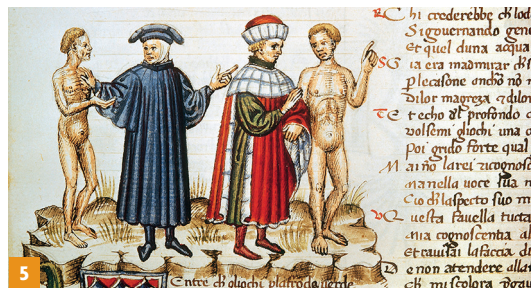 C hi crederebbe ch lod
Si governando gene
et quel duna acqua
G ia era madmirar ch
p lecasone oncho no
Dilor magreza & dilor
E t echo dl profondo d
volsemi gliochi una
poi grido forte qual
M ai no larei ricognosc
ma nella voce sua
Cio ch laspecto suo m
Q uesta favella tucta
mia cognoscentia al
Et avisai lafaccia d
D e non attendere allas
ch mi scolora
Entre ch gliochi plafroda verde
5